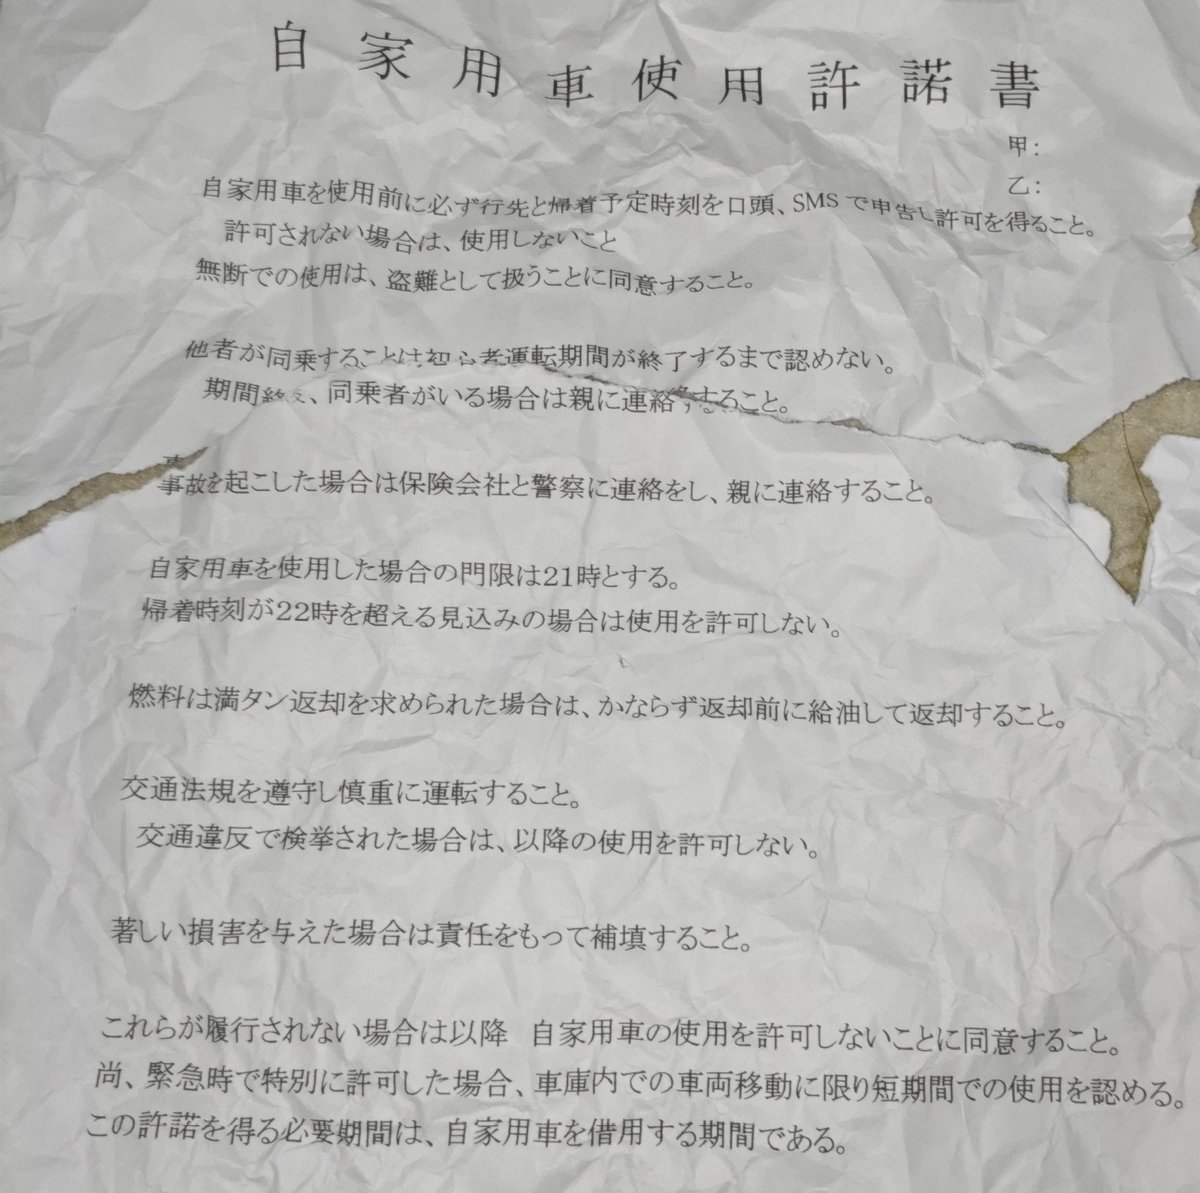 自家用車使用許諾書
甲:
乙:
自家用車を使用前に必ず行先と帰着予定時刻を口頭、SMSで申告し許可を得ること。
許可されない場合は、使用しないこと
無断での使用は、盗難として扱うことに同意すること。
他者が同乗することは初心者運転期間が終了するまで認めない。
期間終了、同乗者がいる場合は親に連絡すること。
事故を起こした場合は保険会社と警察に連絡をし、親に連絡すること。
自家用車を使用した場合の門限は21時とする。
帰着時刻が22時を超える見込みの場合は使用を許可しない。
燃料は満タン返却を求められた場合は、かならず返却前に給油して返却すること。
交通法規を遵守し慎重に運転すること。
交通違反で検挙された場合は、以降の使用を許可しない。
著しい損害を与えた場合は責任をもって補填すること。
これらが履行されない場合は以降　自家用車の使用を許可しないことに同意すること。
尚、緊急時で特別に許可した場合、車庫内での車両移動に限り短期間での使用を認める。
この許諾を得る必要期間は、自家用車を借用する期間である。